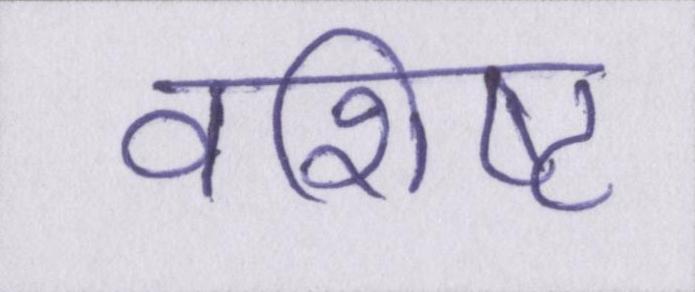 वशिष्ट